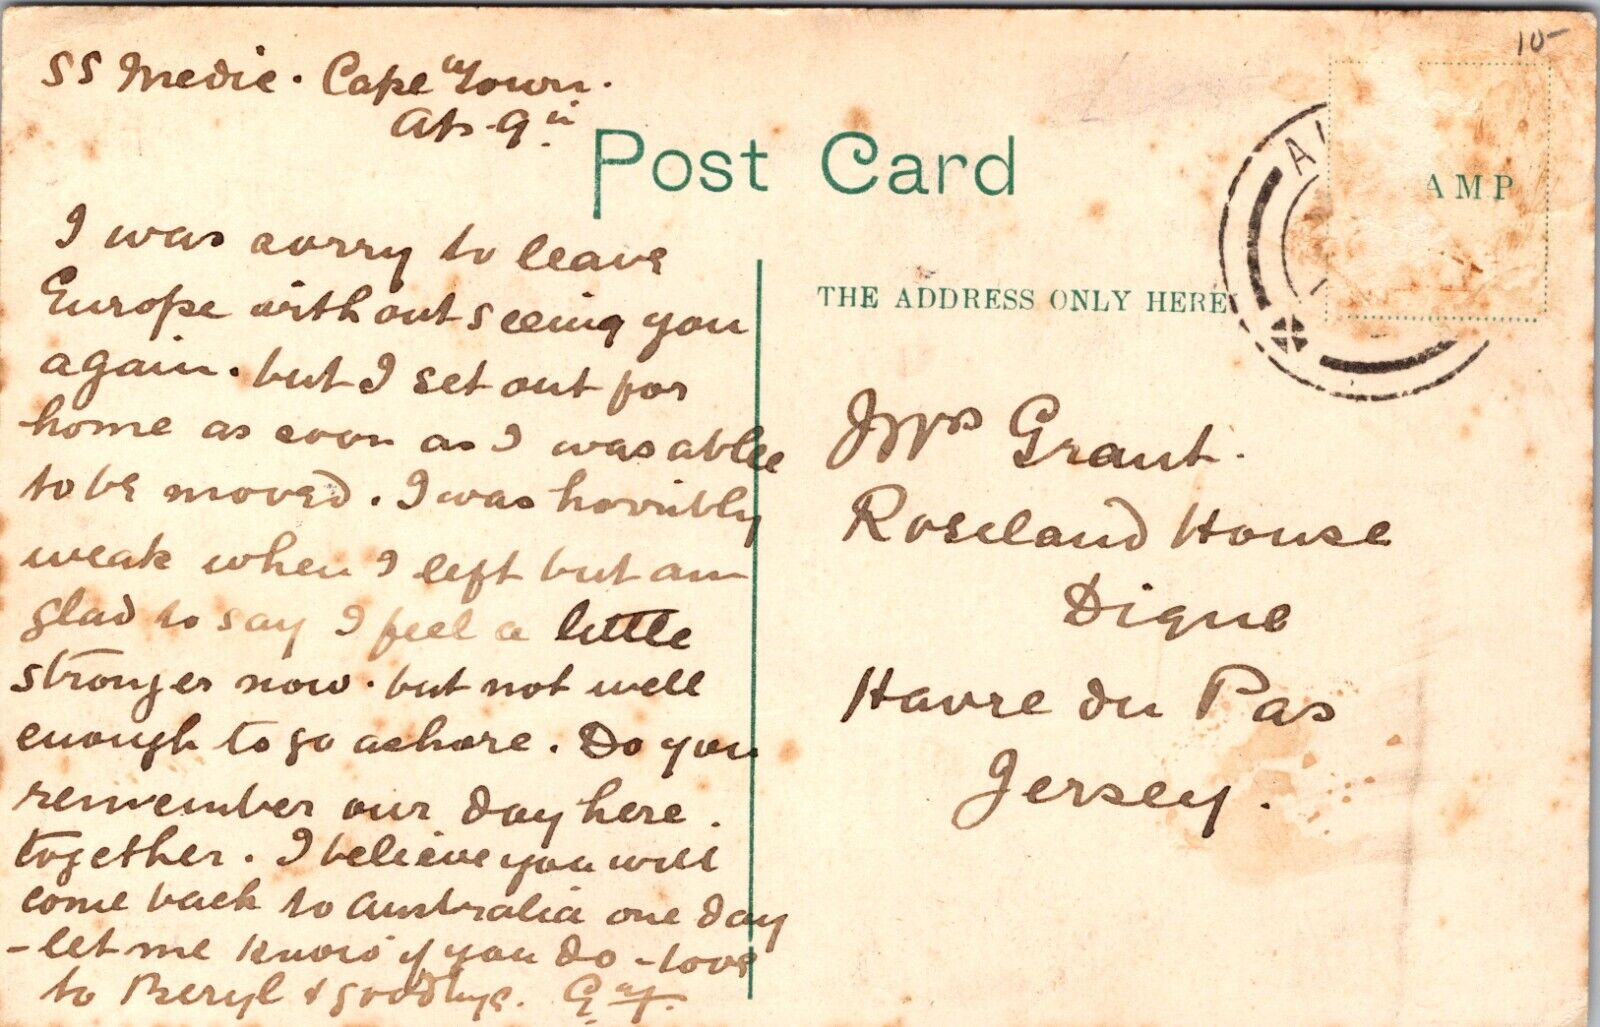 10-
SS Medic. Cape Town.
Ap. 9th
Post Card
AMP
THE ADDRESS ONLY HERE
I was sorry to leave
Europe without seeing you
again. but I set out for
home as soon as I was able
to be moved. I was horribly
weak when I left but am
glad to say I feel a little
stronger now. but not well
enough to go ashore. Do you
remember our day here.
together. I believe you will
come back to Australia one day
- let me know if you do - love
to Beryl & goodbye.
Mrs Grant.
Roseland House
Dique
Havre du Pas
Jersey.